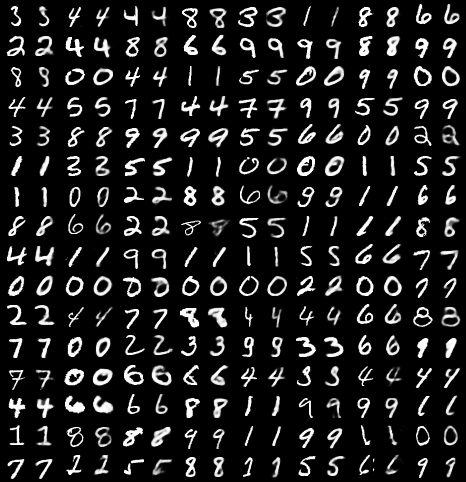 3 3 4 4 4 4 8 8 3 3 1 1 8 8 6 6
2 2 4 4 8 8 6 6 9 9 9 9 8 8 9 9
8 8 0 0 4 4 1 1 5 5 0 0 9 9 0 0
4 4 5 5 7 7 4 4 7 7 9 9 5 5 9 9
3 3 8 8 9 9 9 9 5 5 6 6 0 0 2 2
1 1 3 3 5 5 1 1 0 0 0 0 1 1 5 5
1 1 0 0 2 2 8 8 6 6 9 9 1 1 6 6
8 8 6 6 2 2 8 8 5 5 1 1 1 1 8 8
4 4 1 1 9 9 1 1 1 1 5 5 6 6 7 7
0 0 0 0 0 0 0 0 0 0 2 2 0 0 7 7
2 2 4 4 7 7 8 8 4 4 4 4 6 6 8 8
7 7 0 0 2 2 3 3 9 9 3 3 6 6 9 9
7 7 0 0 6 6 6 6 4 4 3 3 4 4 4 4
4 4 6 6 6 6 8 8 1 1 9 9 9 9 1 1
1 1 8 8 8 8 9 9 1 1 9 9 1 1 0 0
7 7 2 2 5 5 8 8 1 1 5 5 6 6 9 9